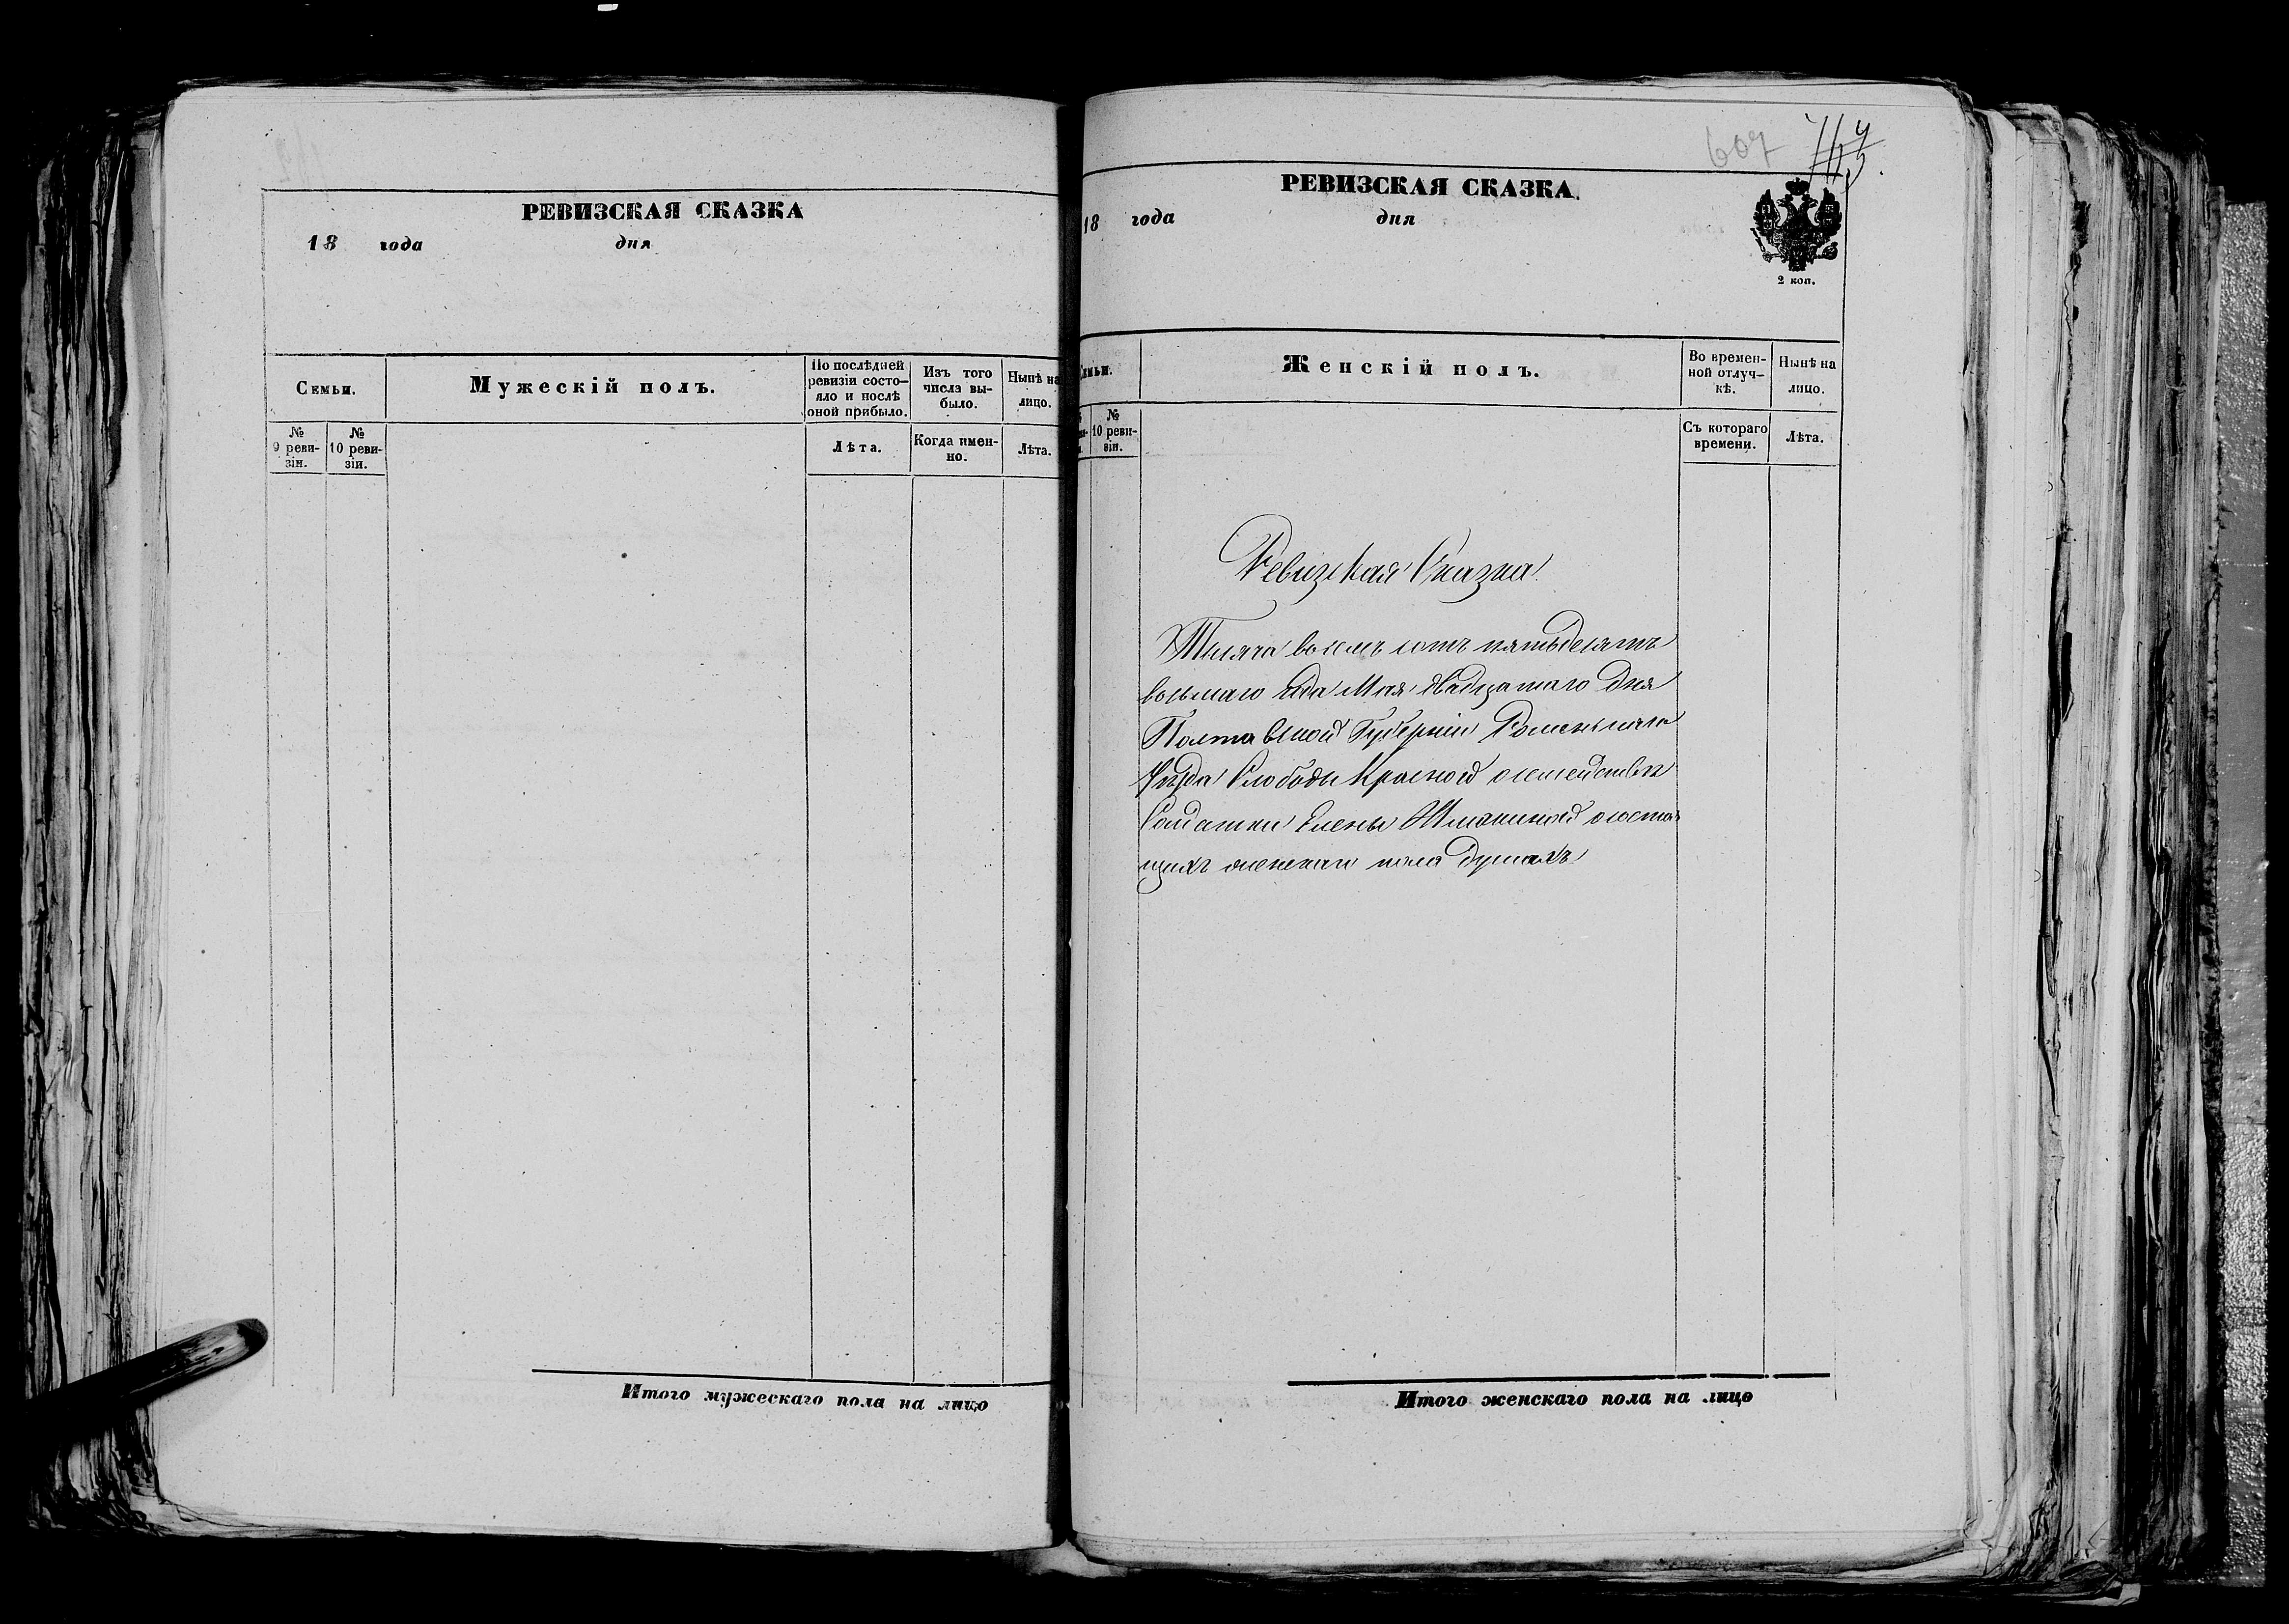 РЕВИЗСКАЯ СКАЗКА
18 года дня
Семьи.
Мужескій полъ.
По послѣдней ревизіи состо-
яло и послѣ
оной прибыло.
Изъ того
числа вы-
было.
Нынѣ на
лицо.
№
9 реви-
зіи.
№
10 реви-
зіи.
Лѣта.
Когда имен-
но.
Лѣта.
Итого мужескаго пола на лицо
607
РЕВИЗСКАЯ СКАЗКА.
18 года дня
2 коп.
Женскій полъ.
Во времен-
ной отлуч-
кѣ.
Нынѣ на
лицо.
№
10 реви-
зіи.
Съ котораго
времени.
Лѣта.
Ревизская Сказка
Тысяча восемь сотъ пятьдесятъ
восьмаго года Мая двадцатаго дня
Полтавской Губерніи Роменскаго
Уѣзда Слободы Красной о семействѣ
Солдатки Елены о состоя
щихъ женскаго пола душахъ
Итого женскаго пола на лицо